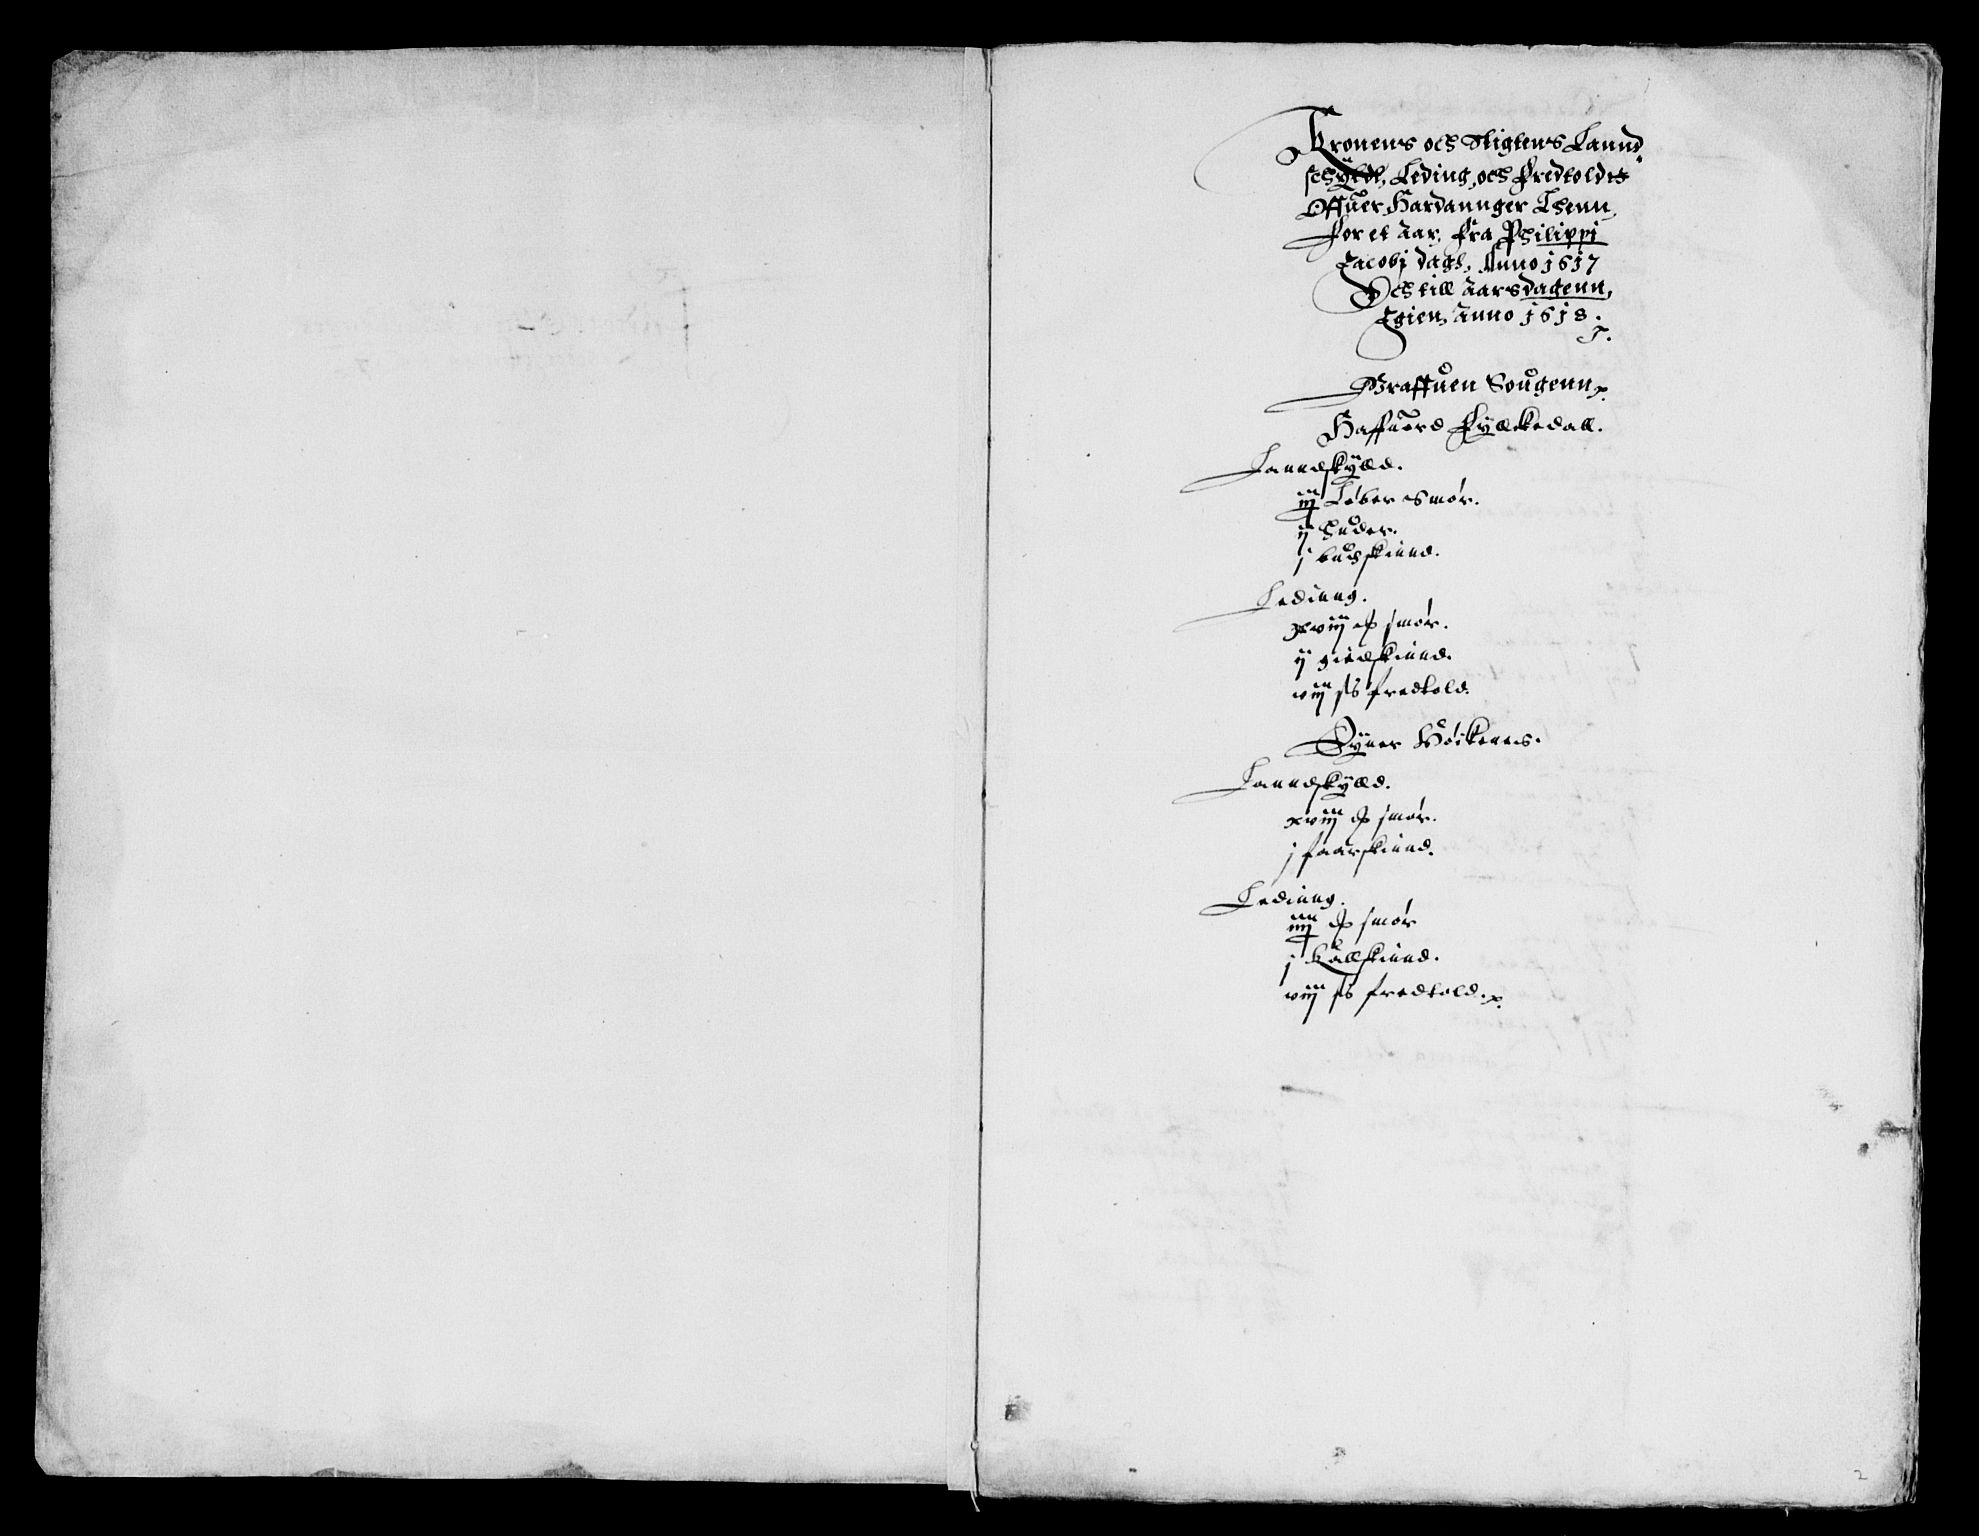 Kronens och Stigtens Lannd
schÿldt, Leding, och Fredtoldtt
Offuer Hardannger Lhenn,
For et Aar, Fra Philippi
Jacobj dagh, Anno 1617
Och till Aarsdagenn,
Igien, Anno 1618.
Graffuen Sougenn
Haffuerd Fÿlckedall.
Lanndskÿld.
iiij Løber Smør.
ij Huder.
j buchskinnd.
Ledinng.
xviij smør.
ij giedskinnd.
viij ß fredtold.
Øÿner Høickenes.
Lanndskÿld.
xviij smør.
j faarskinnd.
Ledinng.
smør
j Kallfskinnd.
viij ß fredtold.
2